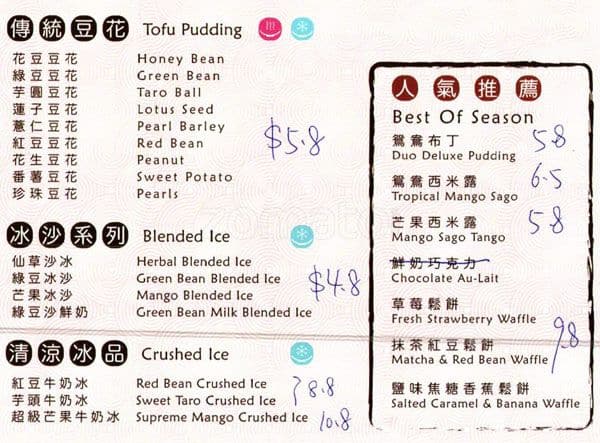 傳統豆花 Tofu Pudding
花豆豆花 Honey Bean
綠豆豆花 Green Bean
芋圓豆花 Taro Ball
蓮子豆花 Lotus Seed
薏仁豆花 Pearl Barley
紅豆豆花 Red Bean
$5.8
花生豆花 Peanut
番薯豆花 Sweet Potato
珍珠豆花 Pearls
冰沙系列 Blended Ice
仙草沙冰 Herbal Blended Ice
綠豆冰沙 Green Bean Blended Ice
$4.8
芒果冰沙 Mango Blended Ice
綠豆沙鮮奶 Green Bean Milk Blended Ice
清涼冰品 Crushed Ice
紅豆牛奶冰 Red Bean Crushed Ice
芋頭牛奶冰 Sweet Taro Crushed Ice
8.8
超級芒果牛奶冰 Supreme Mango Crushed Ice 10.8
人氣推薦
Best Of Season
鴛鴦布丁 5.8
Duo Deluxe Pudding
鴛鴦西米露 6.5
Tropical Mango Sago
芒果西米露 5.8
Mango Sago Tango
鮮奶巧克力
Chocolate Au-Lait
草莓鬆餅
Fresh Strawberry Waffle
抹茶紅豆鬆餅 9.8
Matcha & Red Bean Waffle
鹽味焦糖香蕉鬆餅
Salted Caramel & Banana Waffle
zomato